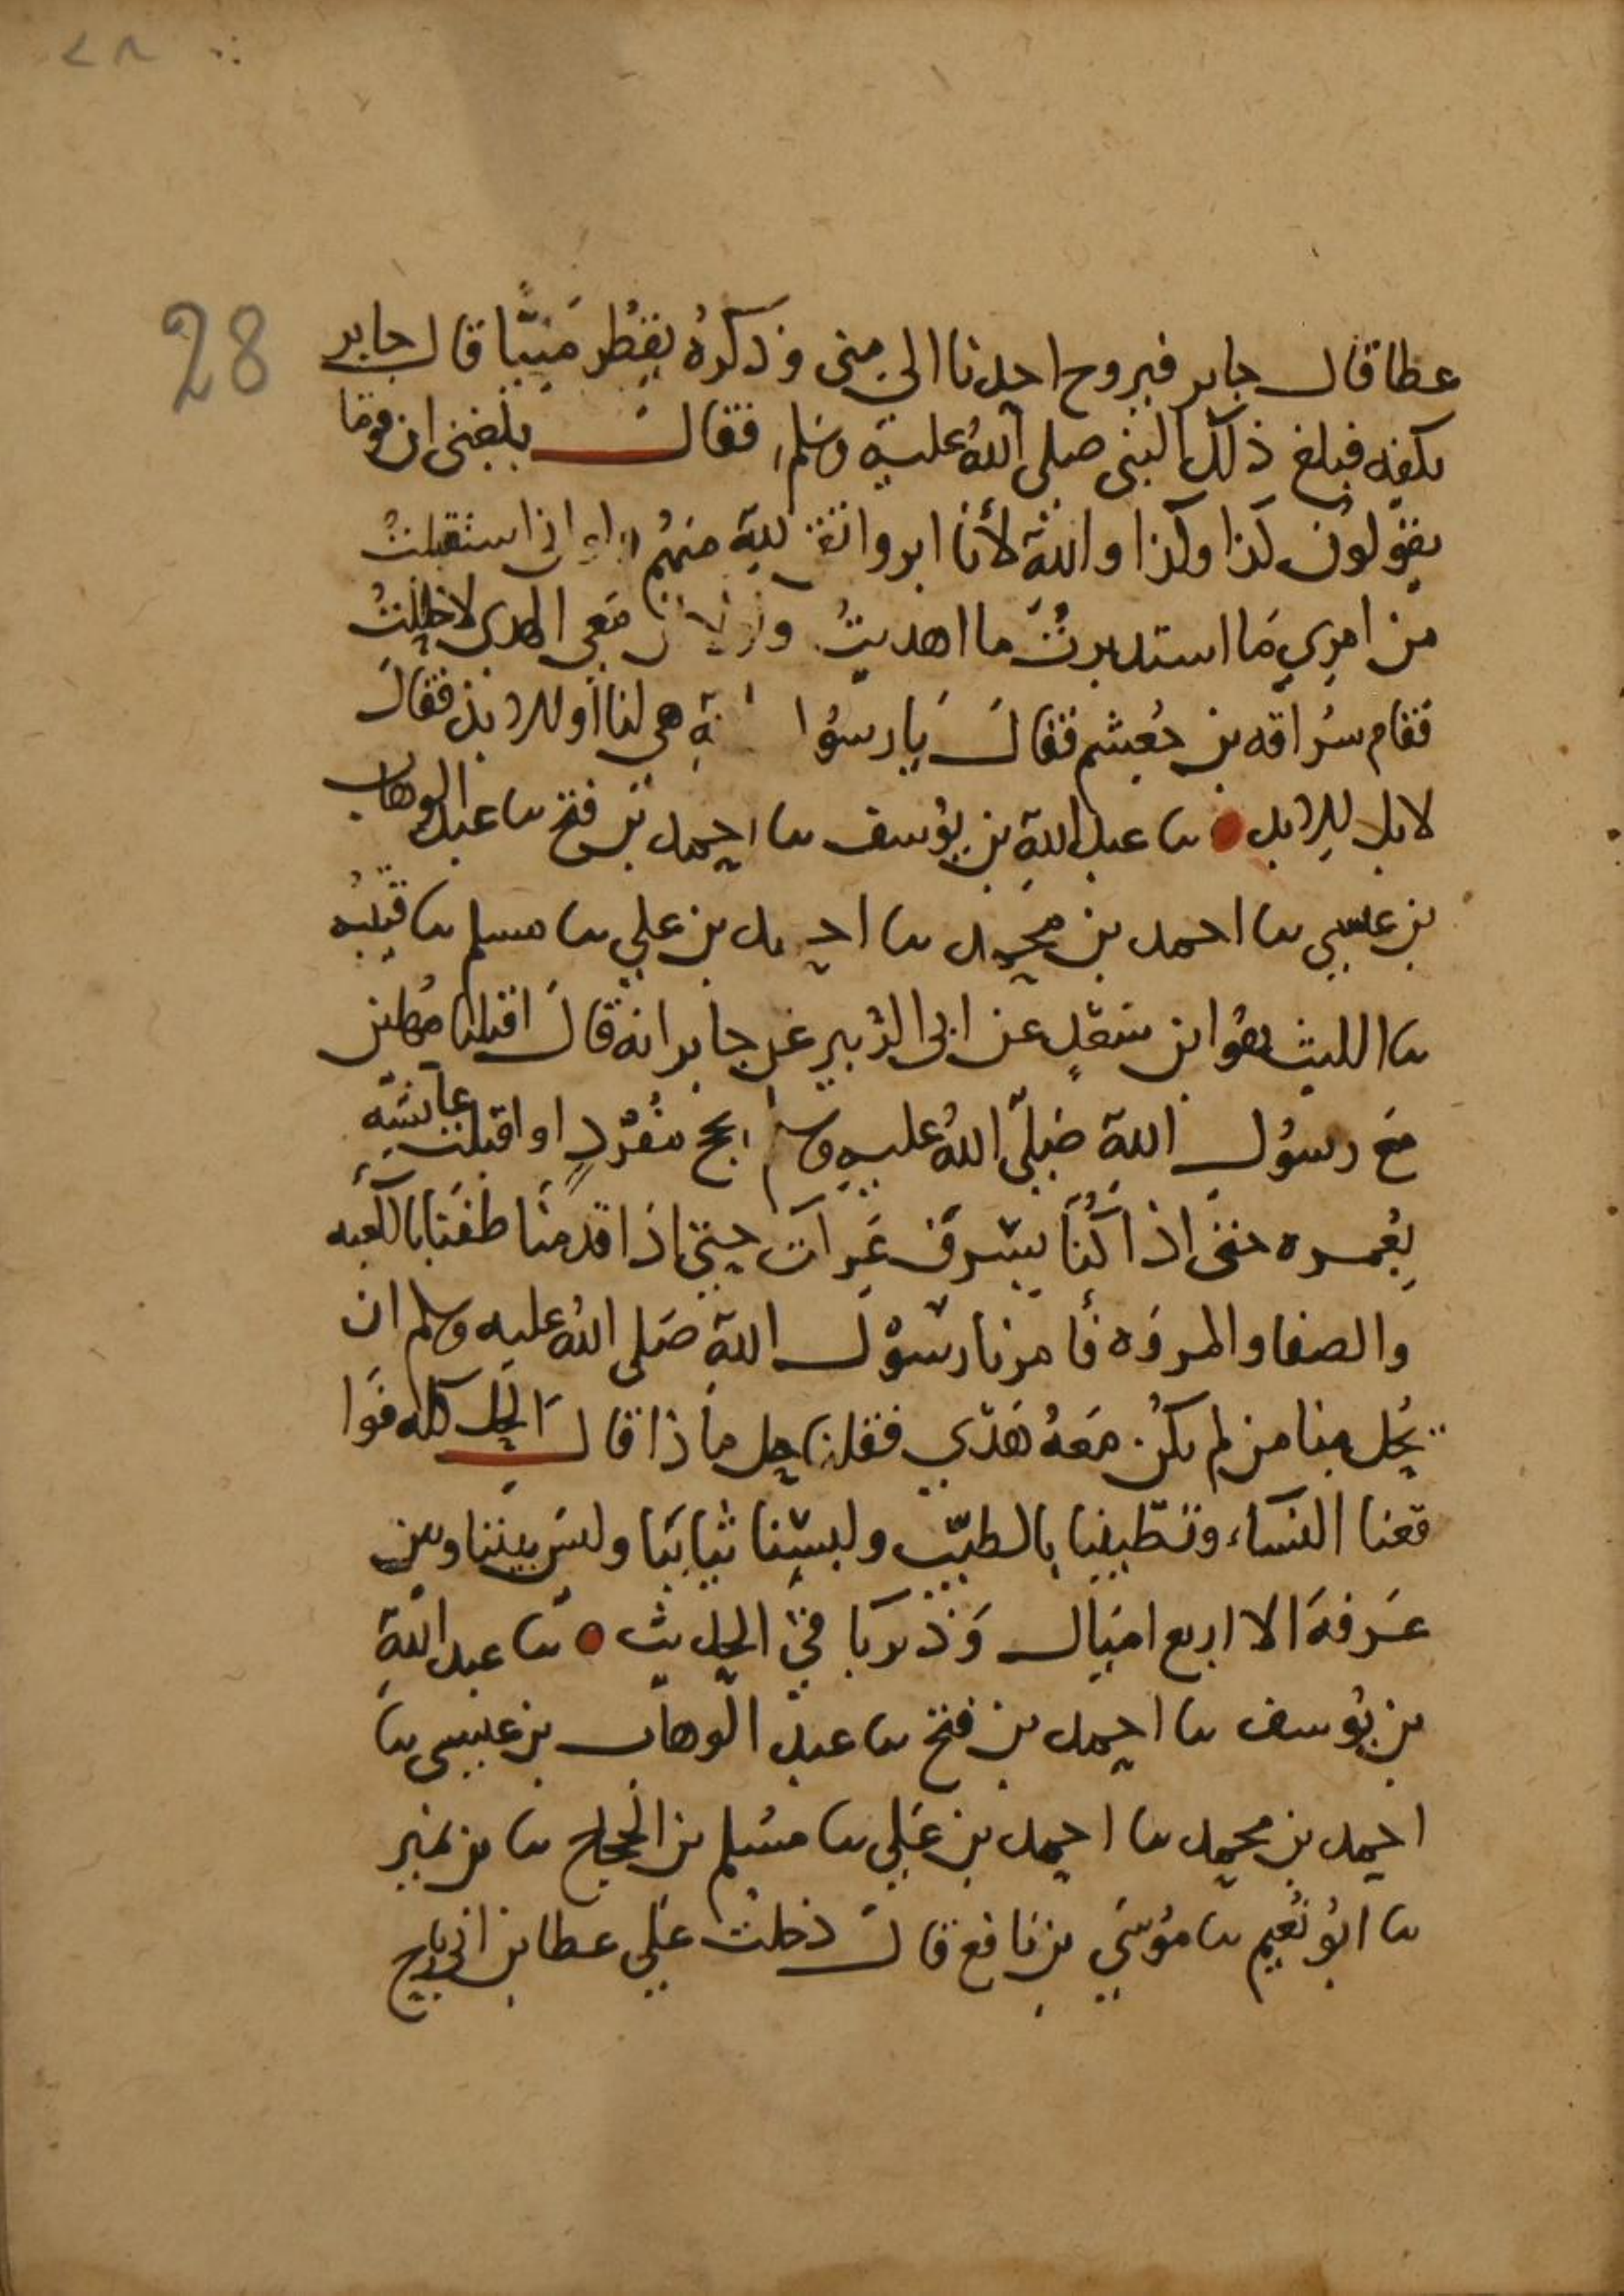 ٢٨
28
عطا قال جابر فيروح احدنا الى منى وذكره يقطر منيّا قال جابر
بكفه فبلغ ذلك النبى صلى الله عليه وسلم فقال بلغنى ان قوما
يقولون كذا وكذا والله لأنا ابر واتقى لله منهم استقبلت
من امري ما استدبرت ما اهديت معي الهدى لاحللت
فقام سراقه بن جعشم فقال يا رسو هي لنا أو للابد فقال
لا بل للابد ثنا عبد الله بن يوسف ثنا احمد بن فتح ثنا عبد الوهاب
بن عيسى ثنا احمد بن محمد ثنا احمد بن علي ثنا مسلم ثنا قتيبه
ثنا الليث هو ابن سعد عن ابى الزبير عن جابر انه قال اقبلنا مهلين
مع رسول الله صلّى الله عليه وسلم بحج مفرد واقبلت عايشه
بعمره حتى اذا كنا بسرف عركت حتى اذا قدمنا طفنا بالكعبه
والصفا والمروه فأمرنا رسول الله صلى الله عليه وسلم ان
يحل منا من لم يكن معه هدي فقلنا حل ماذا قال الحل كله فوا
قعنا النساء وتطيبنا بالطيب ولبسنا ثيابنا وليس بيننا وبين
عرفة الا اربع ليال وذكر باقي الحديث ثنا عبد الله
بن يوسف ثنا احمد بن فتح ثنا عبد الوهاب بن عيسى ثنا
احمد بن محمد ثنا احمد بن علي ثنا مسلم بن الحجاج ثنا بن نمير
ثنا ابو نعيم ثنا موسى بن نافع قال دخلت على عطا بن ابى رباح